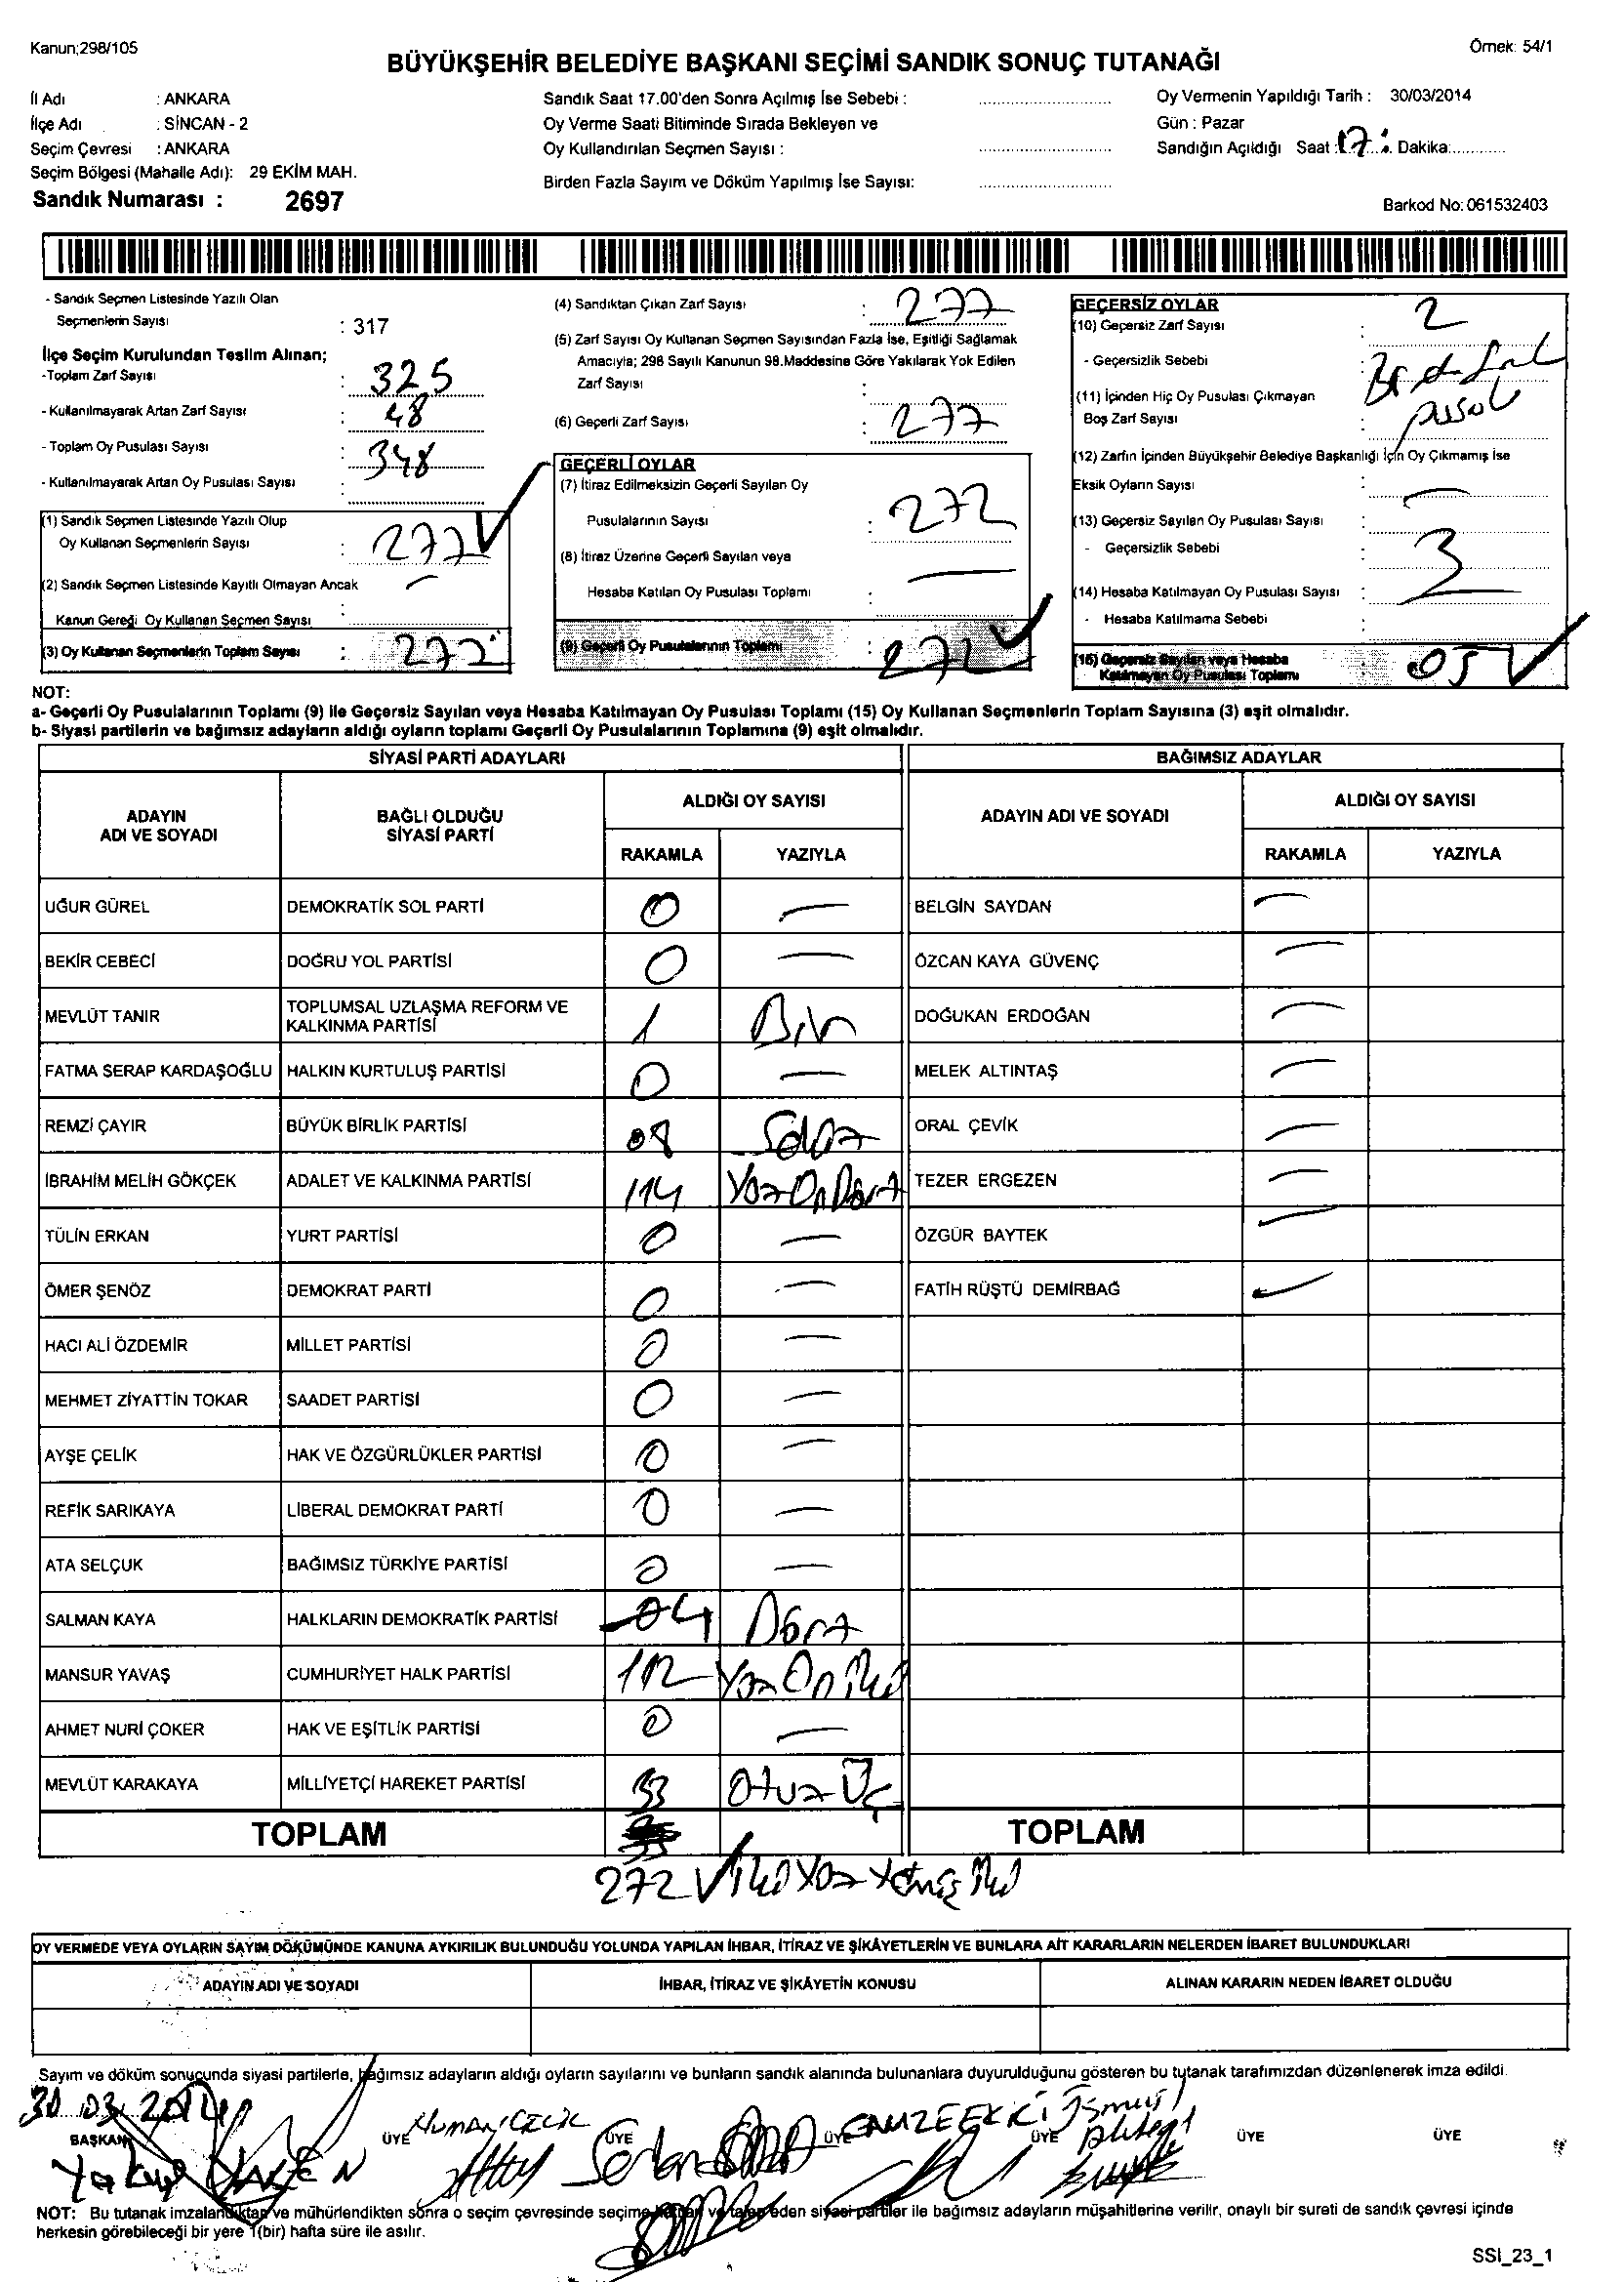 Kanun;298/105
Örnek: 54/1
BÜYÜKŞEHİR BELEDİYE BAŞKANI SEÇİMİ SANDIK SONUÇ TUTANAĞI
İl Adı : ANKARA
İlçe Adı : SİNCAN - 2
Seçim Çevresi : ANKARA
Seçim Bölgesi (Mahalle Adı): 29 EKİM MAH.
Sandık Numarası : 2697
Sandık Saat 17.00'den Sonra Açılmış İse Sebebi :
Oy Verme Saati Bitiminde Sırada Bekleyen ve
Oy Kullandırılan Seçmen Sayısı :
Birden Fazla Sayım ve Döküm Yapılmış İse Sayısı:
Oy Vermenin Yapıldığı Tarih : 30/03/2014
Gün : Pazar
Sandığın Açıldığı Saat : 17 : Dakika:
Barkod No: 061532403
- Sandık Seçmen Listesinde Yazılı Olan
Seçmenlerin Sayısı : 317
İlçe Seçim Kurulundan Teslim Alınan;
-Toplam Zarf Sayısı : 325
- Kullanılmayarak Artan Zarf Sayısı : 48
- Toplam Oy Pusulası Sayısı : 348
- Kullanılmayarak Artan Oy Pusulası Sayısı :
(1) Sandık Seçmen Listesinde Yazılı Olup
Oy Kullanan Seçmenlerin Sayısı : 277
(2) Sandık Seçmen Listesinde Kayıtlı Olmayan Ancak
Kanun Gereği Oy Kullanan Seçmen Sayısı : —
(3) Oy Kullanan Seçmenlerin Toplam Sayısı : 277
(4) Sandıktan Çıkan Zarf Sayısı : 277
(5) Zarf Sayısı Oy Kullanan Seçmen Sayısından Fazla İse, Eşitliği Sağlamak
Amacıyla; 298 Sayılı Kanunun 98.Maddesine Göre Yakılarak Yok Edilen
Zarf Sayısı :
(6) Geçerli Zarf Sayısı : 277
GEÇERLİ OYLAR
(7) İtiraz Edilmeksizin Geçerli Sayılan Oy
Pusulalarının Sayısı : 272
(8) İtiraz Üzerine Geçerli Sayılan veya
Hesaba Katılan Oy Pusulası Toplamı : —
(9) Geçerli Oy Pusulalarının Toplamı : 272
GEÇERSİZ OYLAR
(10) Geçersiz Zarf Sayısı : 2
- Geçersizlik Sebebi :
(11) İçinden Hiç Oy Pusulası Çıkmayan
Boş Zarf Sayısı :
(12) Zarfın İçinden Büyükşehir Belediye Başkanlığı İçin Oy Çıkmamış İse
Eksik Oyların Sayısı : —
(13) Geçersiz Sayılan Oy Pusulası Sayısı : 3
- Geçersizlik Sebebi :
(14) Hesaba Katılmayan Oy Pusulası Sayısı : —
- Hesaba Katılmama Sebebi :
(15) Geçersiz Sayılan veya Hesaba
Katılmayan Oy Pusulası Toplamı : 05
NOT:
a- Geçerli Oy Pusulalarının Toplamı (9) ile Geçersiz Sayılan veya Hesaba Katılmayan Oy Pusulası Toplamı (15) Oy Kullanan Seçmenlerin Toplam Sayısına (3) eşit olmalıdır.
b- Siyasi partilerin ve bağımsız adayların aldığı oyların toplamı Geçerli Oy Pusulalarının Toplamına (9) eşit olmalıdır.
SİYASİ PARTİ ADAYLARI
ADAYIN ADI VE SOYADI BAĞLI OLDUĞU SİYASİ PARTİ ALDIĞI OY SAYISI
RAKAMLA YAZIYLA
UĞUR GÜREL DEMOKRATİK SOL PARTİ 0 —
BEKİR CEBECİ DOĞRU YOL PARTİSİ 0 —
MEVLÜT TANIR TOPLUMSAL UZLAŞMA REFORM VE KALKINMA PARTİSİ 1 Bir
FATMA SERAP KARDAŞOĞLU HALKIN KURTULUŞ PARTİSİ 0 —
REMZİ ÇAYIR BÜYÜK BİRLİK PARTİSİ 08 Sekiz
İBRAHİM MELİH GÖKÇEK ADALET VE KALKINMA PARTİSİ 114 YüzOnDört
TÜLİN ERKAN YURT PARTİSİ 0 —
ÖMER ŞENÖZ DEMOKRAT PARTİ 0 —
HACI ALİ ÖZDEMİR MİLLET PARTİSİ 0 —
MEHMET ZİYATTİN TOKAR SAADET PARTİSİ 0 —
AYŞE ÇELİK HAK VE ÖZGÜRLÜKLER PARTİSİ 0 —
REFİK SARIKAYA LİBERAL DEMOKRAT PARTİ 0 —
ATA SELÇUK BAĞIMSIZ TÜRKİYE PARTİSİ 0 —
SALMAN KAYA HALKLARIN DEMOKRATİK PARTİSİ 04 Dört
MANSUR YAVAŞ CUMHURİYET HALK PARTİSİ 112 Yüz On İki
AHMET NURİ ÇOKER HAK VE EŞİTLİK PARTİSİ 0 —
MEVLÜT KARAKAYA MİLLİYETÇİ HAREKET PARTİSİ 33 Otuz Üç
TOPLAM
272 İki Yüz Yetmiş İki
BAĞIMSIZ ADAYLAR
ADAYIN ADI VE SOYADI ALDIĞI OY SAYISI
RAKAMLA YAZIYLA
BELGİN SAYDAN —
ÖZCAN KAYA GÜVENÇ —
DOĞUKAN ERDOĞAN —
MELEK ALTINTAŞ —
ORAL ÇEVİK —
TEZER ERGEZEN —
ÖZGÜR BAYTEK —
FATİH RÜŞTÜ DEMİRBAĞ —
TOPLAM
OY VERMEDE VEYA OYLARIN SAYIM DÖKÜMÜNDE KANUNA AYKIRILIK BULUNDUĞU YOLUNDA YAPILAN İHBAR, İTİRAZ VE ŞİKÂYETLERİN VE BUNLARA AİT KARARLARIN NELERDEN İBARET BULUNDUKLARI
ADAYIN ADI VE SOYADI İHBAR, İTİRAZ VE ŞİKÂYETİN KONUSU ALINAN KARARIN NEDEN İBARET OLDUĞU
Sayım ve döküm sonucunda siyasi partilerle, bağımsız adayların aldığı oyların sayılarını ve bunların sandık alanında bulunanlara duyurulduğunu gösteren bu tutanak tarafımızdan düzenlenerek imza edildi.
30.03.2014
BAŞKAN ÜYE ÜYE ÜYE ÜYE ÜYE ÜYE
NUMAN ÇELİK
NOT: Bu tutanak imzalandıktan ve mühürlendikten sonra o seçim çevresinde seçime katılan ve talep eden siyasi partiler ile bağımsız adayların müşahitlerine verilir, onaylı bir sureti de sandık çevresi içinde
herkesin görebileceği bir yere 1(bir) hafta süre ile asılır.
SSİ_23_1